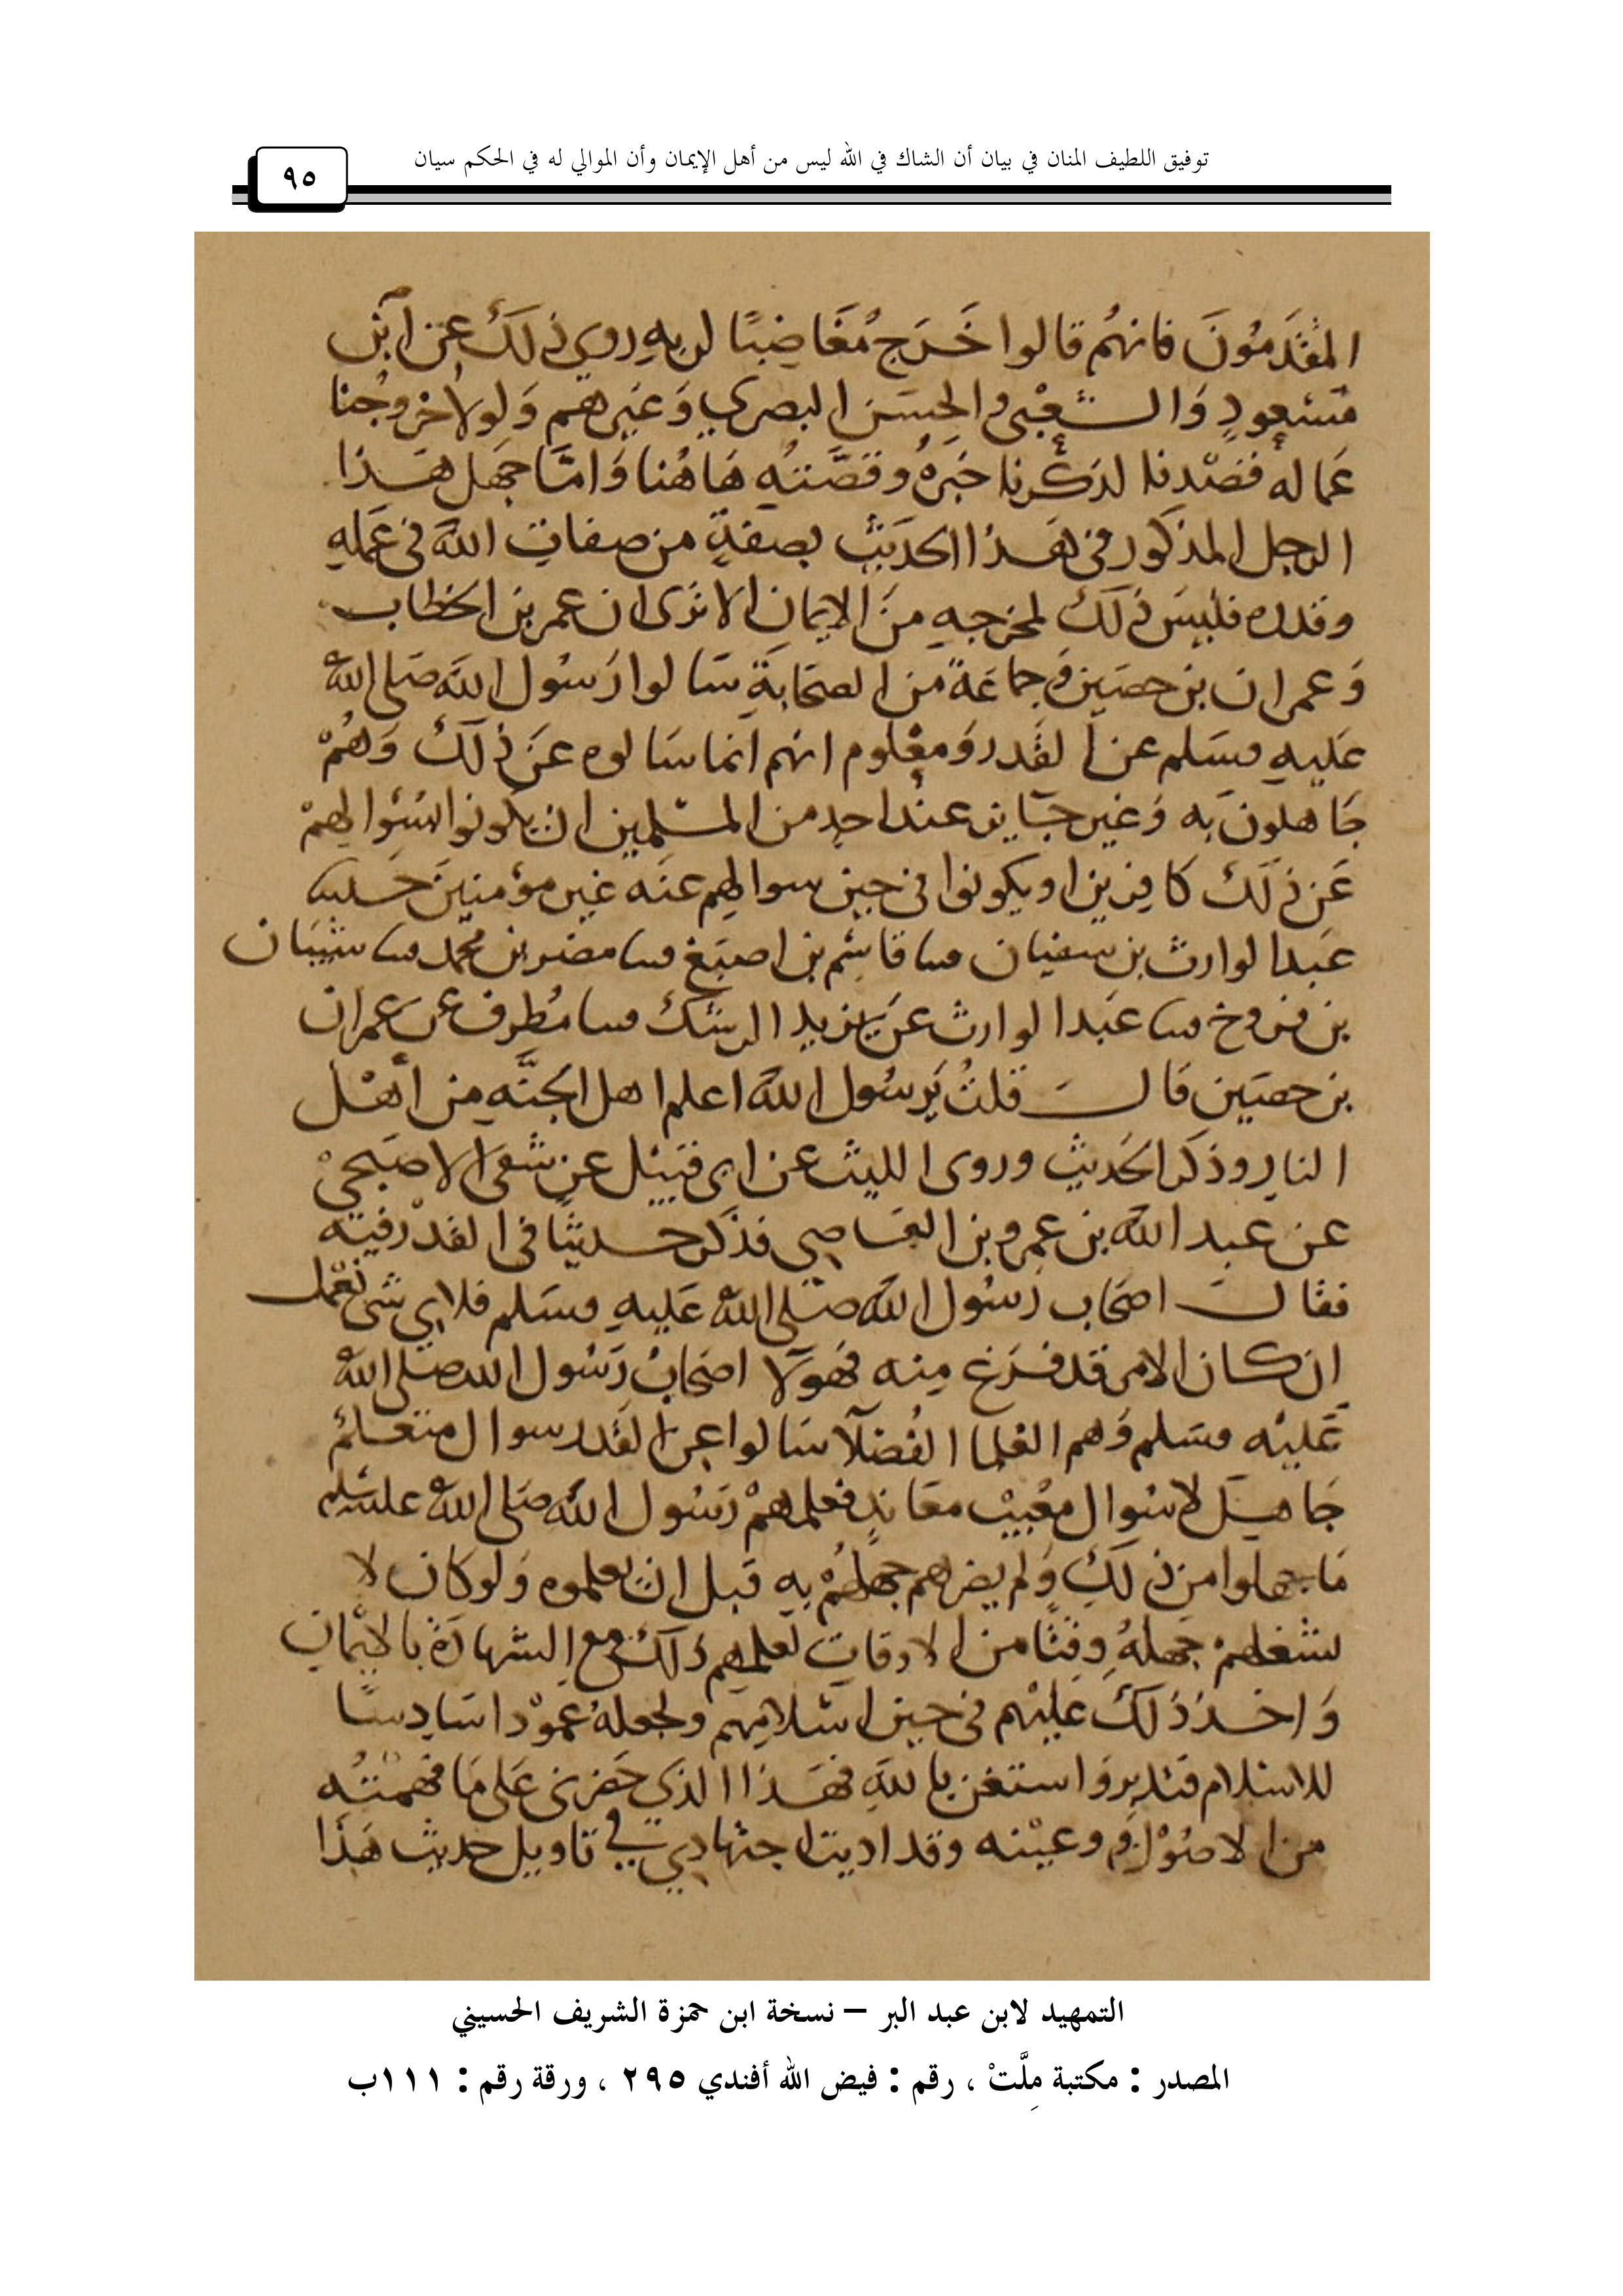 توفيق اللطيف المنان في بيان أن الشاك في الله ليس من أهل الإيمان وأن الموالي له في الحكم سيان
٩٥
المتقَدمُونَ فانهُم قالوا خَرَج مُغَاضِبًا لربهِ روي ذلكَ عن ابن
مَسْعودٍ وَالشعْبى والحسَن البصري وَغيرهم وَلولا خروجُنا
عَما لهُ قصَدنا لذكرنا خبَرهُ وقصَّتهُ هَاهُنا وَامَّا جهل هَذا
الرجل المذكور في هَذا الحدَيث بصفةٍ من صفات اللهَ في عَمله
وقدره فليسَ ذلكَ لمخرجهِ منَ الايمان الا ترى ان عمر بن الخطاب
وَعمران بن حصَين وَجماعَةً من الصحَابَةِ سَالوا رَسُول اللهَ صَلى اللهُ
عَليهِ وسَلم عن القَدر وَمعْلوم انهَم انما سَالوه عَن ذلكَ وَهُمْ
جَاهلونَ به وَغير جَايز عندُ احدٍ من المسْلمين ان يكونوا بسُوَالهمْ
عَن ذلَكَ كافِرين او يكونوا في حين سوالهم عنَه غير مؤمنينَ حَدثنا
عَبد الوارث بن سفيان ثنا قاسَم بن اصبَغ ثنا مضر بن محمد ثنا شيبَان
بن فروخ ثنا عَبد الوارث عنَ يزيد الرشك ثنا مُطرف عن عمران
بن حصَين قَالَ قلتُ يَرسُول اللهَ اعلم اهل الجنَّه من أهْل
النارِ وذكَر الحَديث وروى الليث عن ابى قبيْل عن شفىَ الاصبَحيْ
عن عبد اللهَ بن عمرو بن العَاصِي فذكَر حديثًا في القدْر فيْه
فقالَ اصحَاب رَسُول اللهَ صَلى اللهُ عَليهِ وسَلم فلاي شى نعْمل
إن كان الامر قد فرَغ مِنه فهَولا اصحَابُ رَسُول الله صَلى اللهُ
عَليْه وسَلم وَهم العُلما الفُضلا سَالوا عن القَدر سوال متعَلمٌ
جَاهلٍ لا سُوال معْبيْث معَاندٍ فعلمهمْ رَسُول اللهَ صَلى اللهُ عليه سَلم
مَا جهلوا من ذلكَ وَلم يضرهم جهلهُمْ بهِ قبل ان يعلموه وَلو كان لا
يشغلهمْ جَهلهُ وقتًا من الاوقات لعلمهم ذلكَ مع الشهادَة بالايْمان
وَاخذ ذلكَ عَليْهم في حين اسْلامِهم ولجعلهُ عموْدا سَادسًا
للاسْلام فتدبر وَاستعن باللهِ فهَذا الذي حَضرنى عَلى مَا فهمْتُه
من الاصُوْل وعيْته وقد اديت اجتهادي في تاويل حديث هَذا
التمهيد لابن عبد البر – نسخة ابن حمزة الشريف الحسيني
المصدر : مكتبة مِلَّتْ ، رقم : فيض الله أفندي ٢٩٥ ، ورقة رقم : ١١١ب